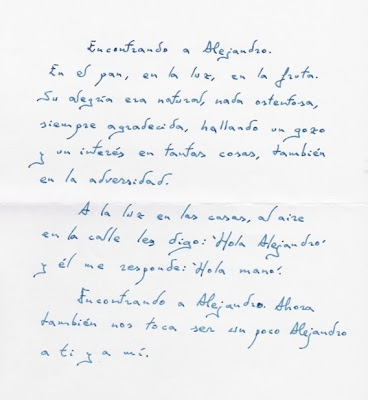 Encontrando a Alejandro.
En el pan, en la luz, en la fruta.
Su alegría era natural, nada ostentosa,
siempre agradecida, hallando un gozo
y un interés en tantas cosas, también
en la adversidad.
A la luz en las casas, al aire
en la calle les digo: 'Hola Alejandro'
y él me responde: 'Hola mano'.
Encontrando a Alejandro. Ahora
también nos toca ser un poco Alejandro
a ti y a mí.